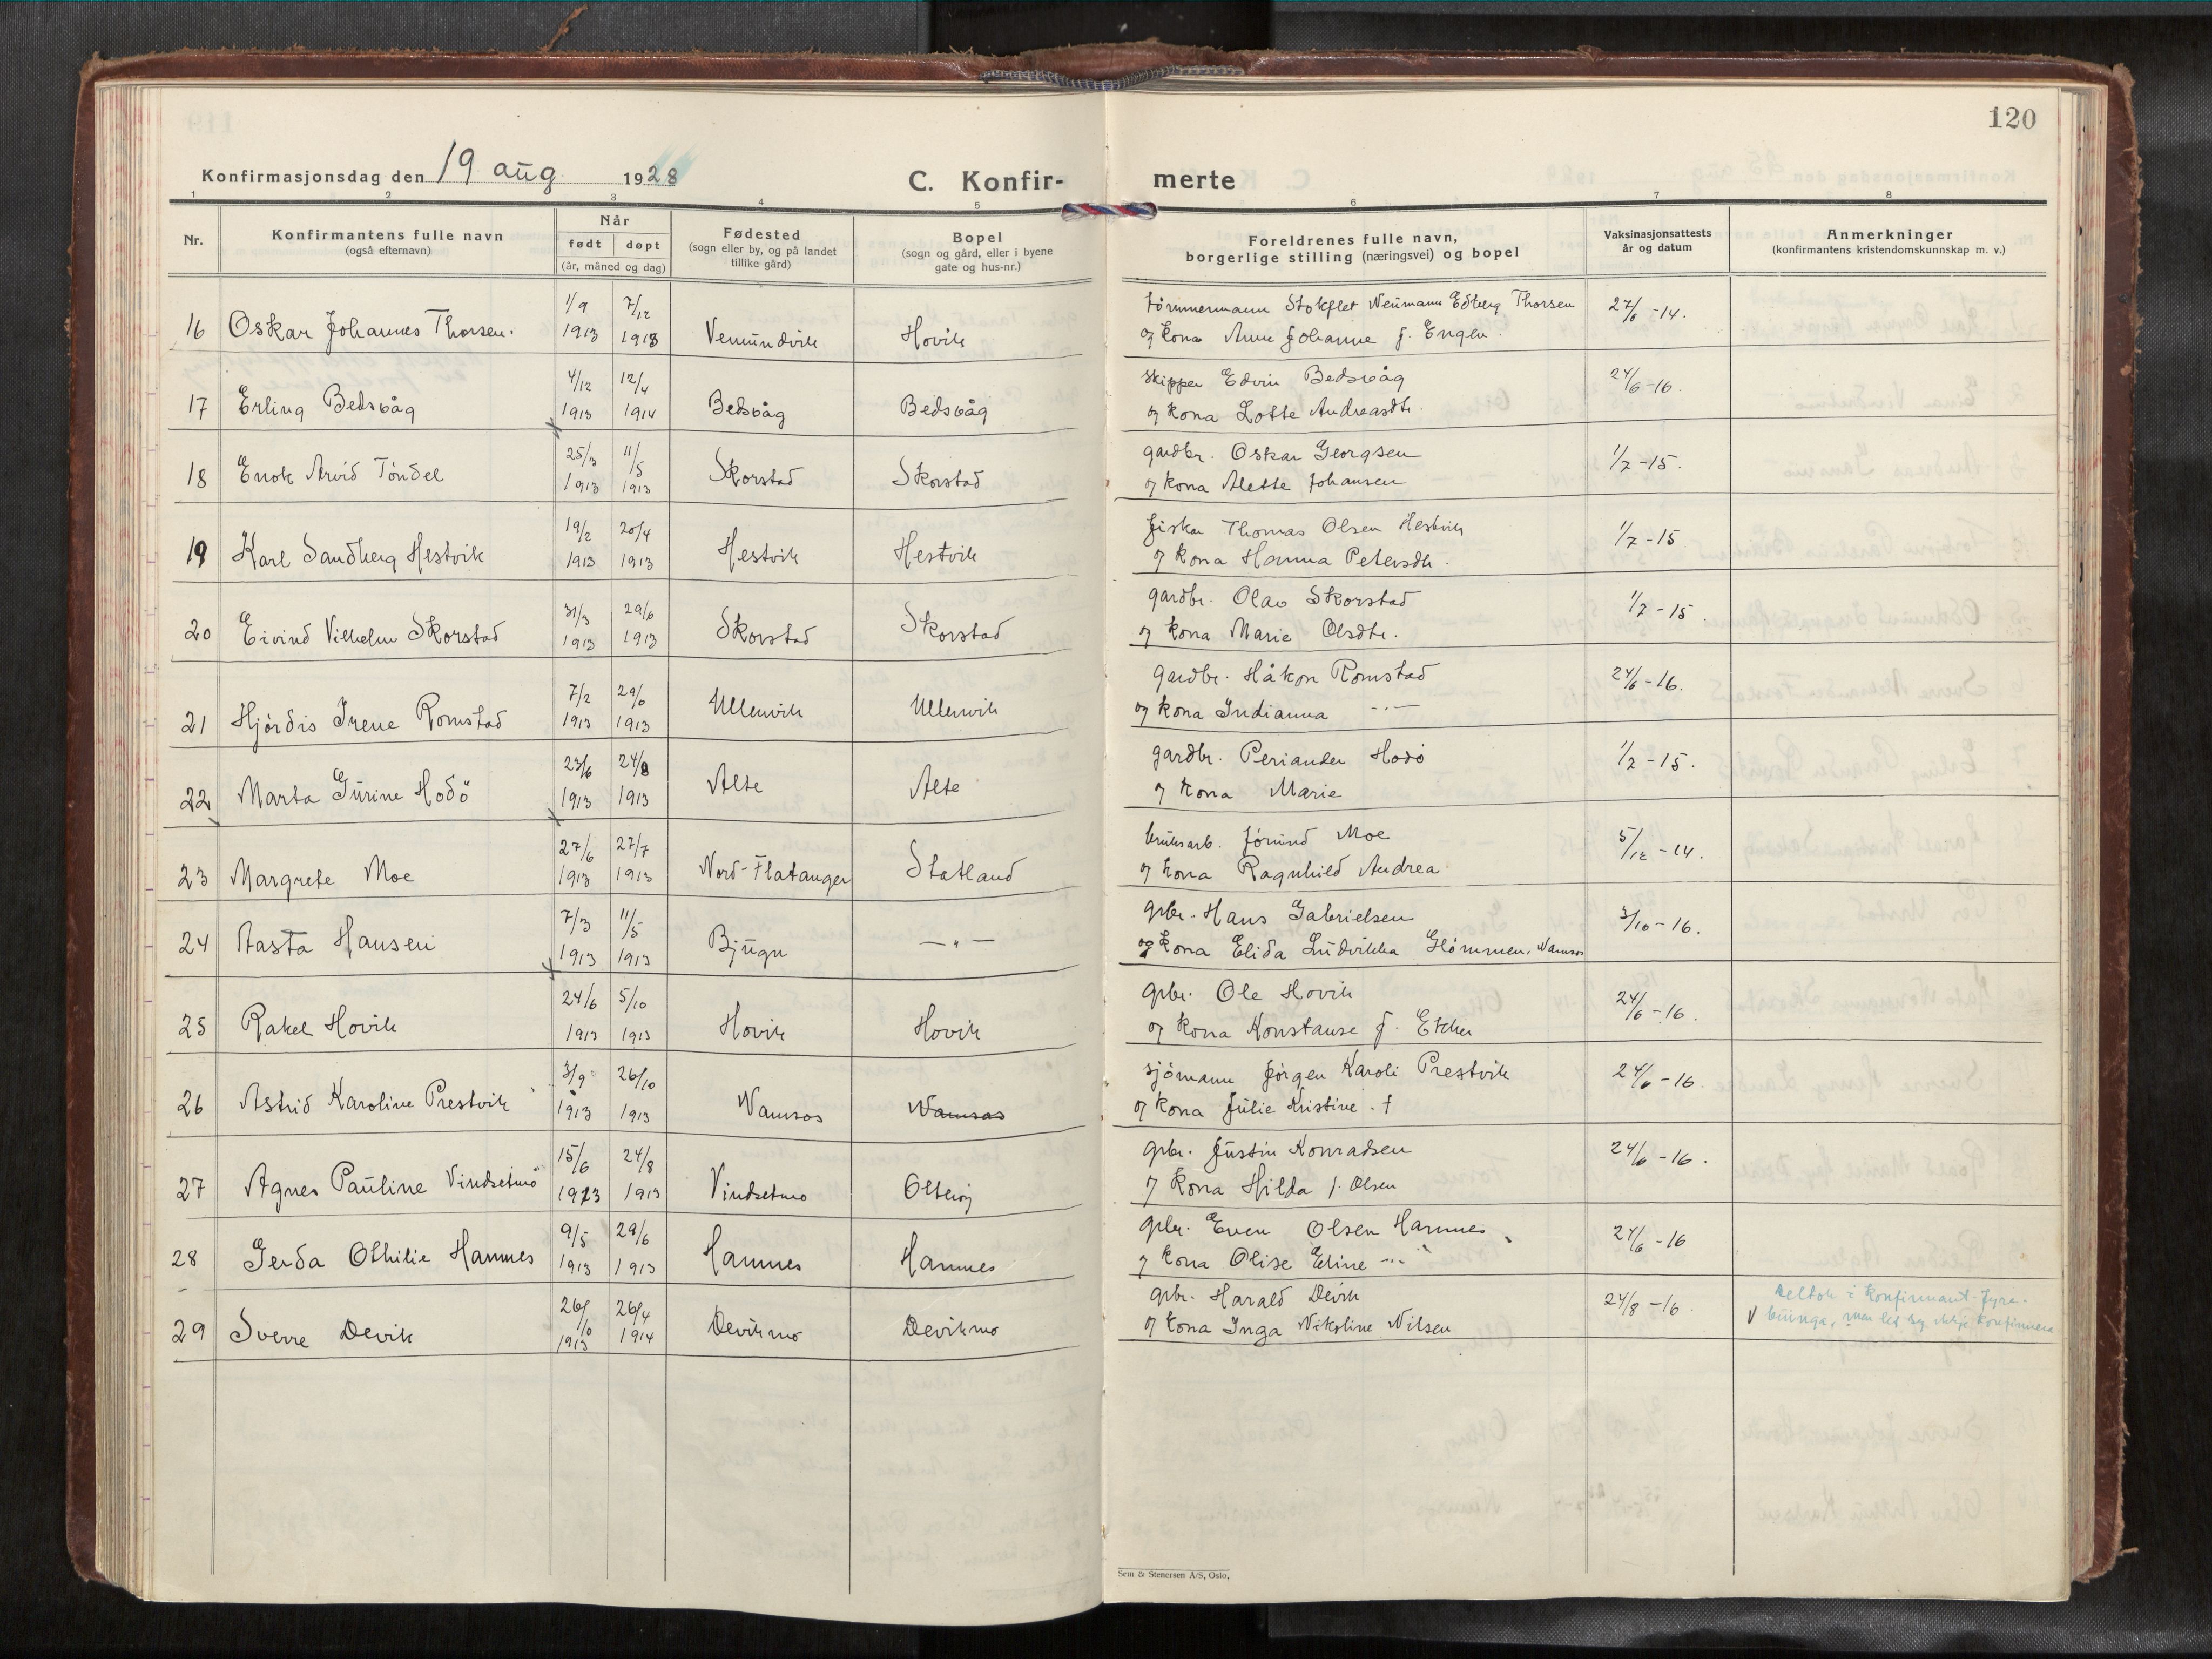 120
Konfirmasjonsdag den 19 aug 1928
C. Konfir- merte
1 2 3 4 5 6 7 8
Nr.
Konfirmantens fulle navn
(også efternavn)
Når
født døpt
(år, måned og dag)
Fødested
(sogn eller by, og på landet
tillike gård)
Bopel
(sogn og gård, eller i byene
gate og hus-nr.)
Foreldrenes fulle navn,
borgerlige stilling (næringsvei) og bopel
Vaksinasjonsattests
år og datum
Anmerkninger
(konfirmantens kristendomskunnskap m. v.)
1/9 7/12 tömmermann Stokflet Neümann Edberg Thorsen 27/6 -14.
16 Oskar Johannes Thorsen. 1913 1913 Vemündvik Hovik
og kona Anne Johanne f. Engen.
4/12 12/4 Skipper Edvin Bedsvåg 24/6 -16.
17 Erling Bedsvåg 1913 1914 Bedsvåg Bedsvåg
og kona Lotte Andreasdtr.
25/3 11/5 gardbr. Oskar Georgsen 1/7 -15.
18 Enok Arvid Töndel 1913 1913 Skorstad Skorstad
og kona Alette Johansen
19/2 20/4 fisker Thomas Olsen Hestvik 1/7 -15.
19 Karl Sandberg Hestvik 1913 1913 Hestvik Hestvik
og kona Hanna Petersdtr.
31/3 29/6 gardbr. Olav Skorstad 1/7 -15.
20 Eivind Vilhelm Skorstad 1913 1913 Skorstad Skorstad
og kona Marie Olsdtr.
7/2 29/6 gardbr. Håkon Romstad 24/6 -16.
21 Hjördis Irene Romstad 1913 1913 Ullenvik Ullenvik
og kona Indianna -"-
23/6 24/8 gardbr. Periander Hodö 1/7 -15.
22 Marta Gürine Hodö 1913 1913 Alte Alte
og kona Marie
27/6 27/7 bruksarb. Jöründ Moe 5/12 -14.
23 Margrete Moe 1913 1913 Nord-Flatanger Statland
og kona Ragnhild Andrea
7/3 11/5 grbr. Hans Gabrielsen 3/10 -16.
24 Aasta Hansen 1913 1913 Bjügn -"-
og kona Elida Lüdvikka Glömmen, Namsos
24/6 5/10 grbr. Ole Hovik 24/6 -16.
25 Rakel Hovik 1913 1913 Hovik Hovik
og kona Konstanse f.
3/9 26/10 sjömann Jörgen Karoli Prestvik 24/6 -16.
26 Astrid Karoline Prestvik 1913 1913 Namsos Namsos
og kona Jülie Kristine. †
15/6 24/8 grbr. Jüstin Konradsen 24/6 -16.
27 Agnes Paüline Vindsetmo 1913 1913 Vindsetmo
og kona Hilda f. Olsen
9/5 29/6 grbr. Even Olsen Hamnes 24/6 -16
28 Gerda Othilie Hamnes 1913 1913 Hamnes Hamnes
og kona Olise Eline -"-
26/10 26/4 grbr. Harald Devik 24/8 -16.
29 Sverre Devik 1913 1914 Devikmo Devikmo
og kona Inga Nikoline Nilsen
Deltok i konfirmant-fyre-
büinga, men let seg ikkje konfirmera
Sem & Stenersen A/S, Oslo,